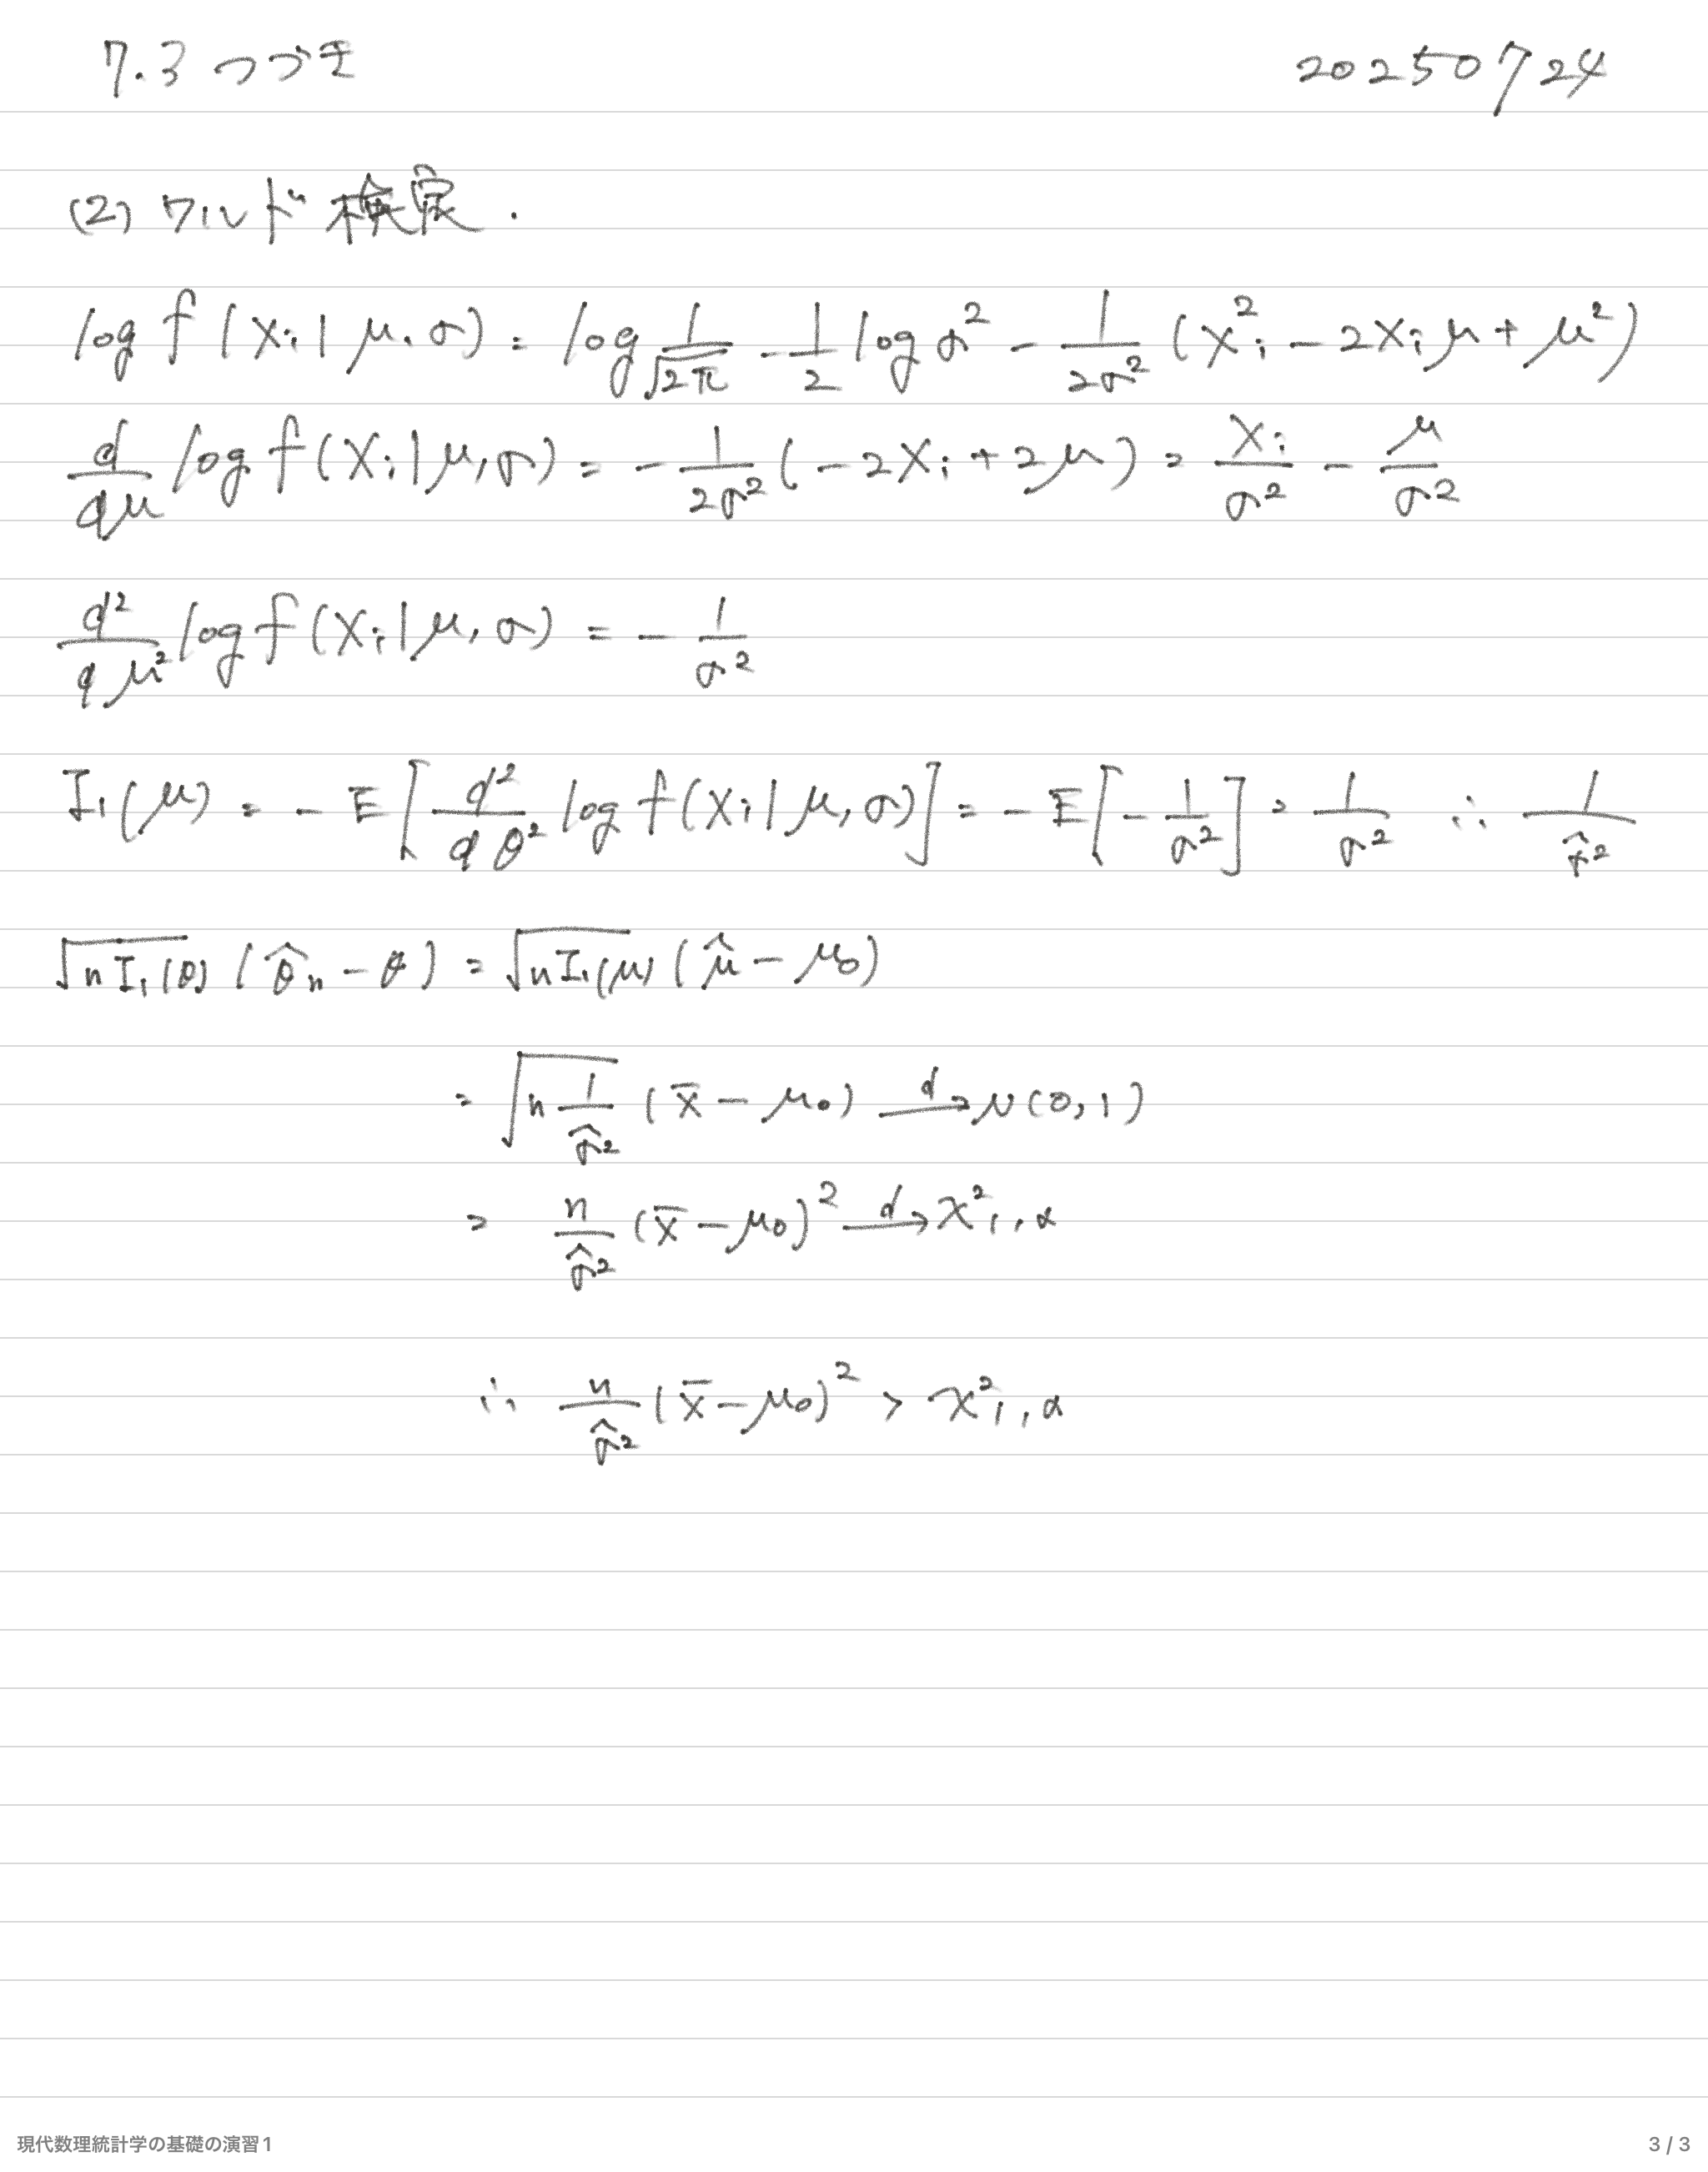 7.3 つづき 20250724
(2) ワルド検定.
log f(Xi | μ. σ) = log 1/√2π - 1/2 log σ² - 1/2σ² (X²i - 2Xiμ + μ²)
d/dμ log f(Xi | μ, σ) = - 1/2σ² (-2Xi + 2μ) = Xi/σ² - μ/σ²
d²/dμ² log f(Xi | μ, σ) = - 1/σ²
I₁(μ) = - E[d²/dθ² log f(Xi | μ, σ)] = - E[- 1/σ²] = 1/σ² ∴ 1/σ̂²
√nI₁(θ) (θ̂n - θ) = √nI₁(μ) (μ̂ - μ₀)
= √n 1/σ̂² (x̄ - μ₀) →d N(0, 1)
= n/σ̂² (x̄ - μ₀)² →d χ²₁, α
∴ n/σ̂² (x̄ - μ₀)² > χ²₁, α
現代数理統計学の基礎の演習1 3 / 3